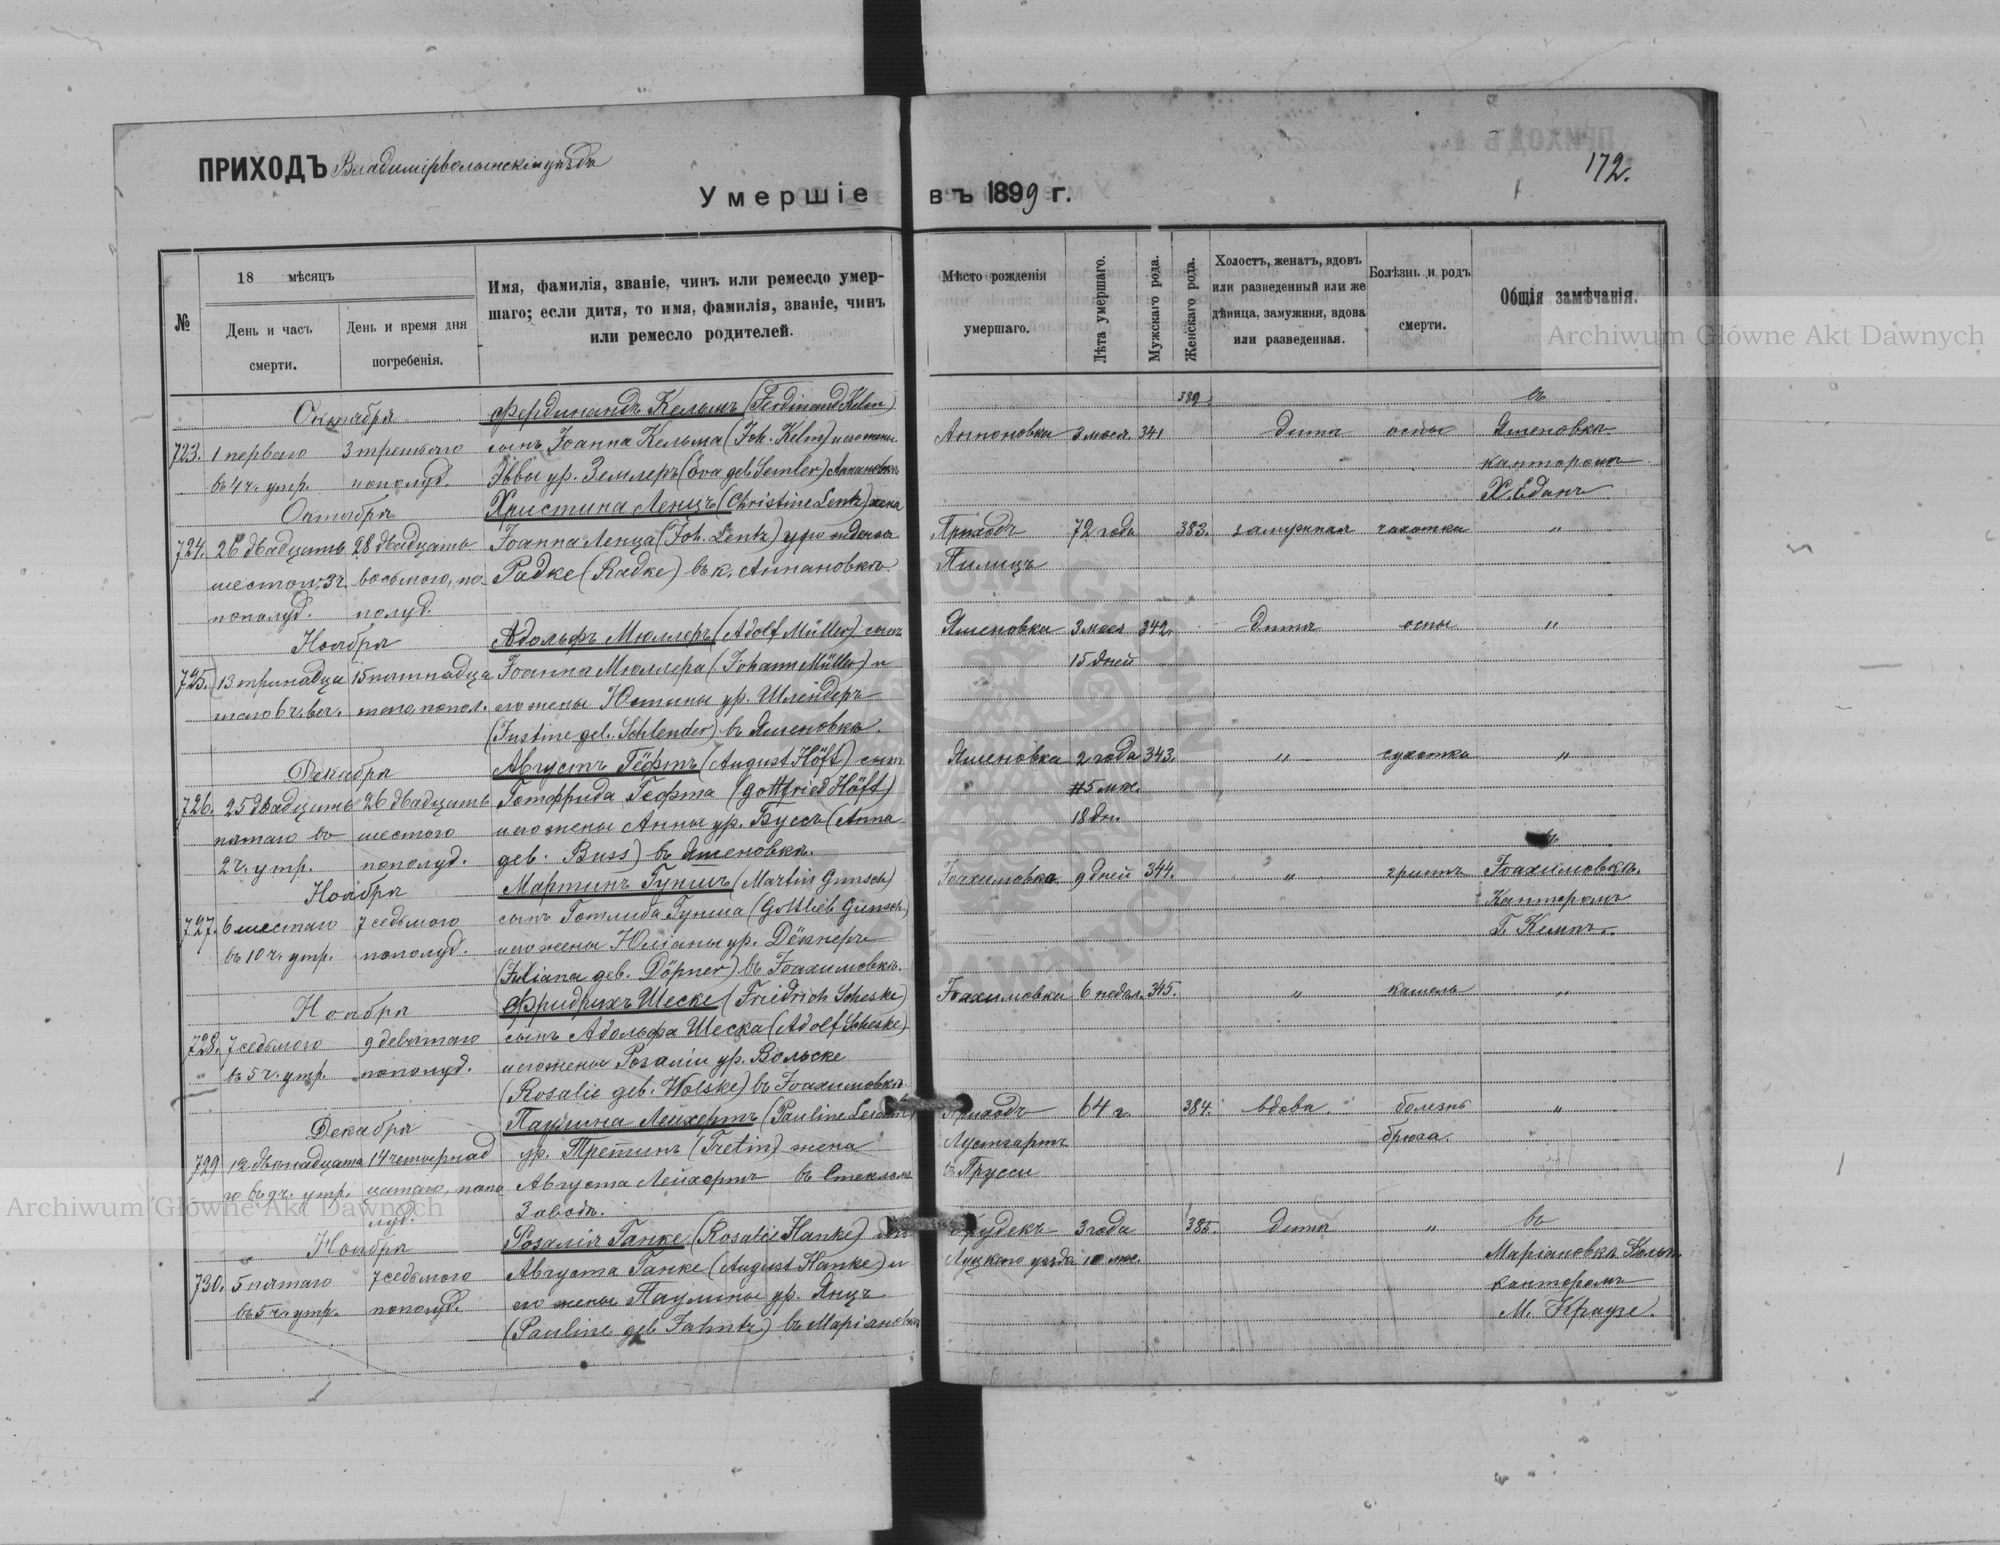 ПРИХОДЪ Владимірволынскій уѣздъ
172.
Умершіе въ 1899 г.
№
18 мѣсяцъ
День и часъ смерти.
День и время дня погребенія.
Имя, фамилія, званіе, чинъ или ремесло умер-
шаго; если дитя, то имя, фамилія, званіе, чинъ
или ремесло родителей.
Мѣсто рожденія умершаго.
Лѣта умершаго.
Мужскаго рода.
Женскаго рода.
Холостъ, женатъ, вдовъ
или разведенный или же
дѣвица, замужняя, вдова
или разведенная.
Болѣзнь и родъ смерти.
Общія замѣчанія.
Archiwum Główne Akt Dawnych
Октября Фердинандъ Кельмъ (Ferdinand Kelm) 382. въ
723. 1 перваго 3 третьяго сынъ Іоанна Кельма (Joh. Kelm) и его жены Антоновка 3 мѣся. 341 Дитя оспы Яменовка
въ 4 ч. утр. пополуд. Эввы ур. Землеръ (Eva geb. Semler) Антановка канторомъ
Октября Христина Ленцъ (Christine Lentz) жена Х. Еданъ
724. 26 двадцать 28 двадцать Іоанна Ленца (Joh. Lentz) Приходъ 72 годъ 383. замужная чахотка "
шестого, 3 ч. восьмого, по- Радке (Radke) въ к. Аннановка Пилицъ
пополуд. полуд.
Ноября Адольфъ Мюллеръ (Adolf Müller) сынъ Яменовка 3 мѣся 342. Дитя оспы "
725. 13 тринадца 15 пятнадца Іоанна Мюллера (Johann Müller) и 15 дней
таго 6 ч. веч. таго, попол. его жены Юстины ур. Шлендеръ
(Justine geb. Schlender) въ Яменовка.
Декабря Августъ Гёфтъ (August Höft) сынъ Яменовка 2 года 343. " сухотка "
726. 25 двадцать 26 двадцать Готфрида Гефта (Gottfried Höft) 5 мѣс.
пятаго въ шестого и его жены Анны ур. Буссъ (Anna 18 дн.
2 ч. утр. пополуд. геб. Buss) въ Яменовка. въ
Ноября Мартинъ Гуншъ (Martin Gunsch) Іоахимовка 9 дней 344. " гриппъ Іоахимовка.
727. 6 шестаго 7 седьмого сынъ Готлиба Гунша (Gottlieb Gunsch) Канторомъ
въ 10 ч. утр. пополуд. и его жены Юліаны ур. Дёпнеръ Г. Кемпъ.
(Juliana geb. Döpner) въ Іоахимовка.
Ноября Фридрихъ Шеске (Friedrich Scheske) Іоахимовка 6 недѣл. 345. " кашель "
728. 7 седьмого 9 девятаго сынъ Адольфа Шеска (Adolf Scheske)
въ 5 ч. утр. пополуд. и его жены Розаліи ур. Вольске
(Rosalie geb. Wolske) въ Іоахимовка
Декабря Паулина Лейхертъ (Pauline Приходъ 64 г. 384. вдова. болезнь "
729 12 двѣнадцата 14 четырнад ур. Третинъ (Tretin) жена Лустгартъ брюха.
го въ ч. утр. цатаго, попо Августа Лейхертъ въ Стеклян въ Прусси
луд. Заводъ.
Ноября Розалія Ганке (Rosalie Hanke) 3 года 385. Дитя " въ
730. 5 пятаго 7 седьмого Августа Ганке (August Hanke) и Луцкого уѣзда 10 мѣс. Маріановка Кольн.
въ 5 ч. утр. пополуд. его жены Паулины ур. Янцъ канторомъ
(Pauline geb. Jahntz) въ Маріановка М. Краузе.
Archiwum Główne Akt Dawnych